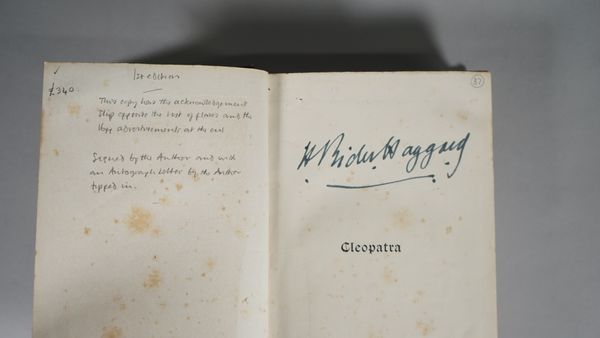 1st edition
£340
This copy has the acknowledgement
slip opposite the list of plates and the
16pp advertisements at the end
Signed by the Author and with
an Autograph Letter by the Author
tipped in.
37
H Rider Haggard
Cleopatra